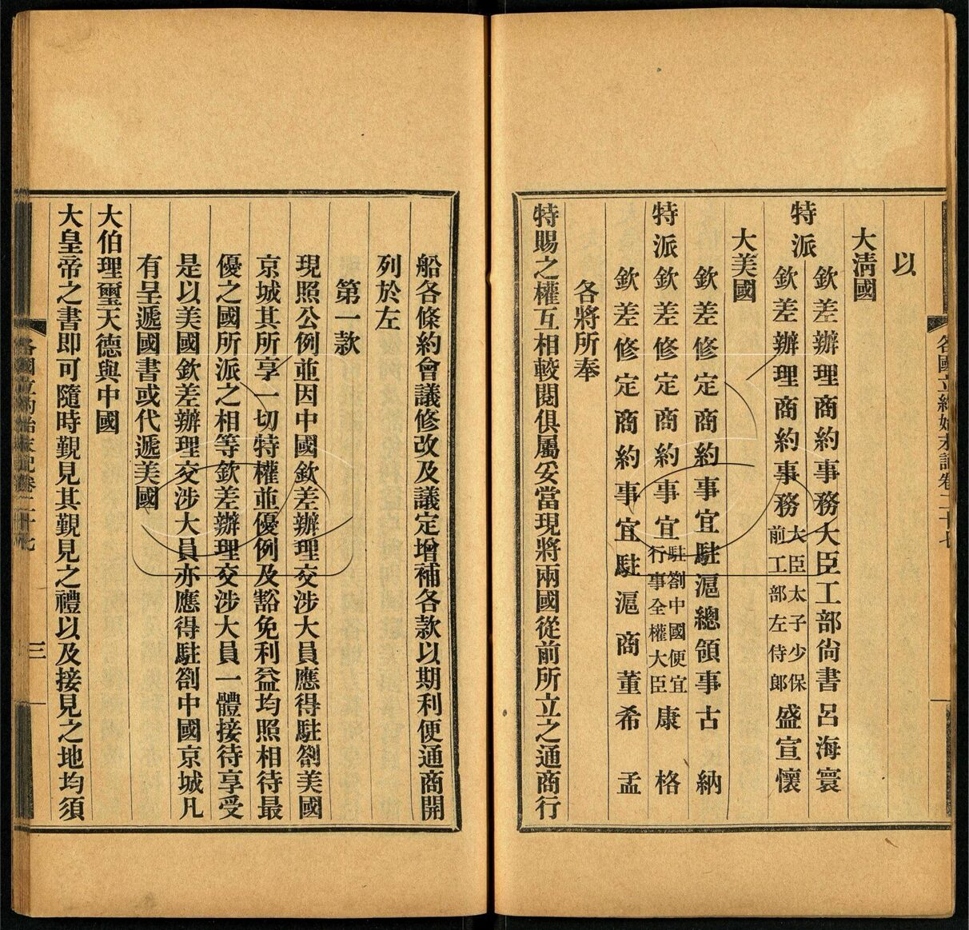 以
大淸國
欽差辦理商約事務大臣工部尙書呂海寰
特派
欽差辦理商約事務大臣太子少保前工部左侍郎盛宣懷
大美國
欽差修定商約事宜駐滬總領事古 納
特派欽差修定商約事宜駐劄中國便宜行事全權大臣康 格
欽差修定商約事宜駐滬商董希 孟
各將所奉
特賜之權互相較閱俱屬妥當現將兩國從前所立之通商行
船各條約會議修改及議定增補各款以期利便通商開
列於左
第一款
現照公例並因中國欽差辦理交涉大員應得駐劄美國
京城其所享一切特權並優例及豁免利益均照相待最
優之國所派之相等欽差辦理交涉大員一體接待享受
是以美國欽差辦理交涉大員亦應得駐劄中國京城凡
有呈遞國書或代遞美國
大伯理璽天德與中國
大皇帝之書即可隨時覲見其覲見之禮以及接見之地均須
各國立約始末記卷二十七
三